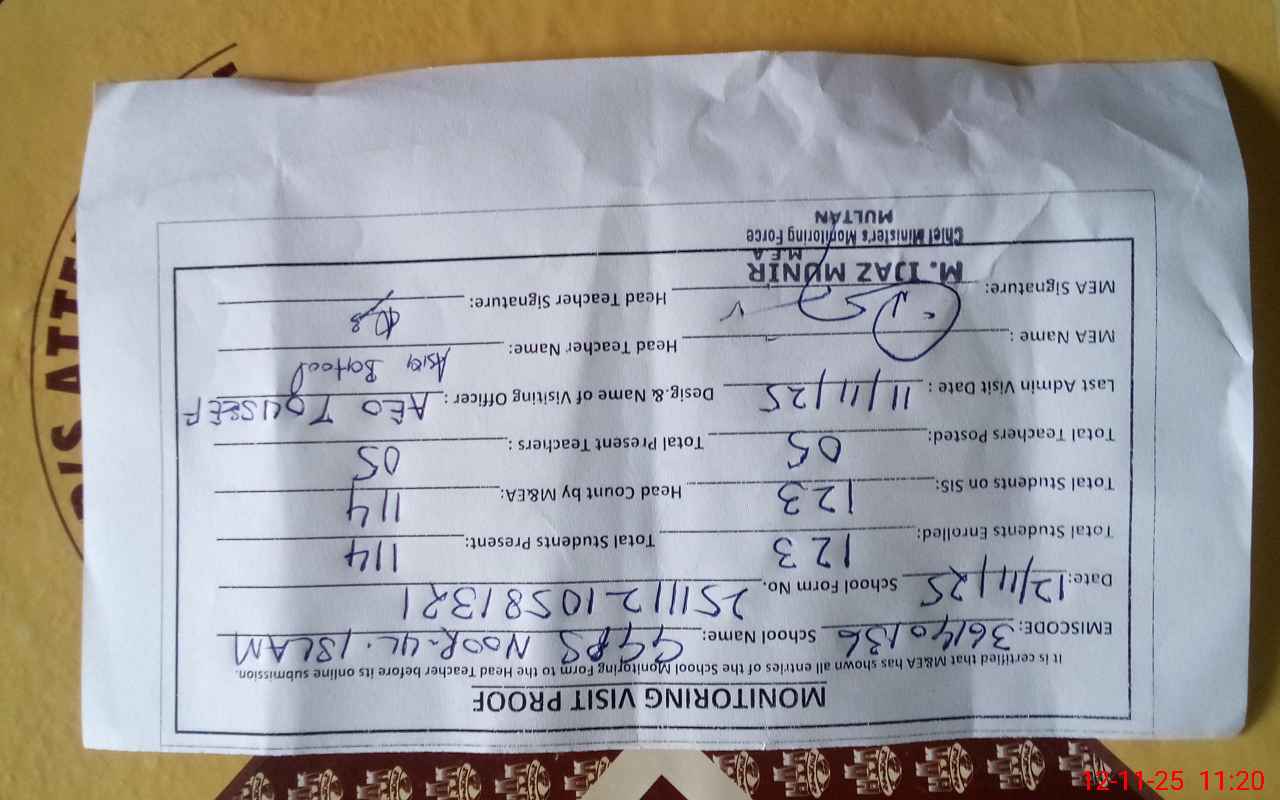 MONITORING VISIT PROOF
It is certified that M&EA has shown all entries of the School Monitoring Form to the Head Teacher before its online submission.
EMISCODE: 36140136 School Name: GGPS NOOR-UL-ISLAM
Date: 12/11/25 School Form No. 25111210581321
Total Students Enrolled: 123 Total Students Present: 114
Total Students on SIS: 123 Head Count by M&EA: 114
Total Teachers Posted: 05 Total Present Teachers : 05
Last Admin Visit Date : 11/11/25 Desig.& Name of Visiting Officer : AEO TOUSEEF
MEA Name : Head Teacher Name: Asia Batool
MEA Signature: Head Teacher Signature:
M. IJAZ MUNIR
M.E.A
Chief Minister's Monitoring Force
MULTAN
12-11-25 11:20